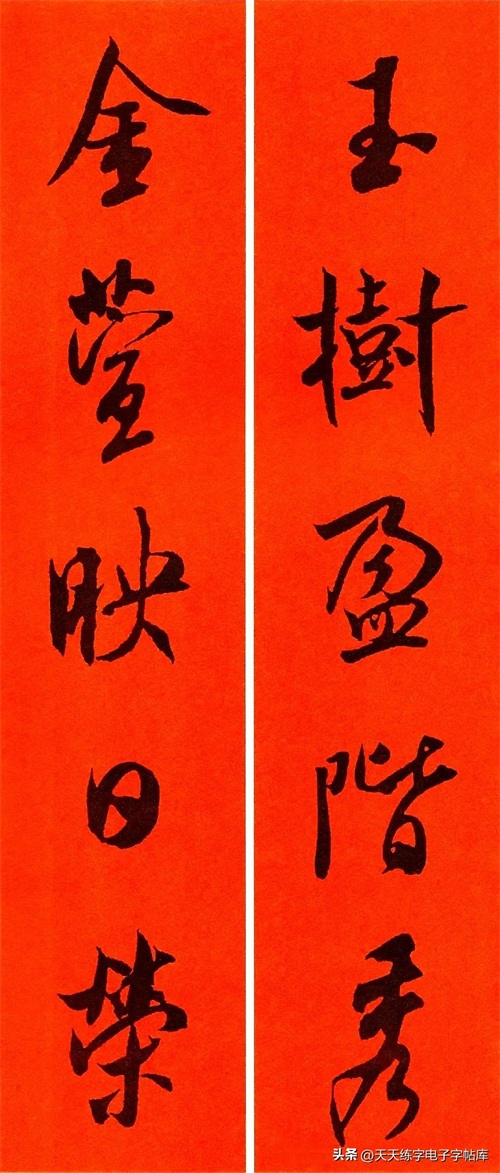 玉樹盈階秀
金萱映日榮
头条 @天天练字电子字帖库